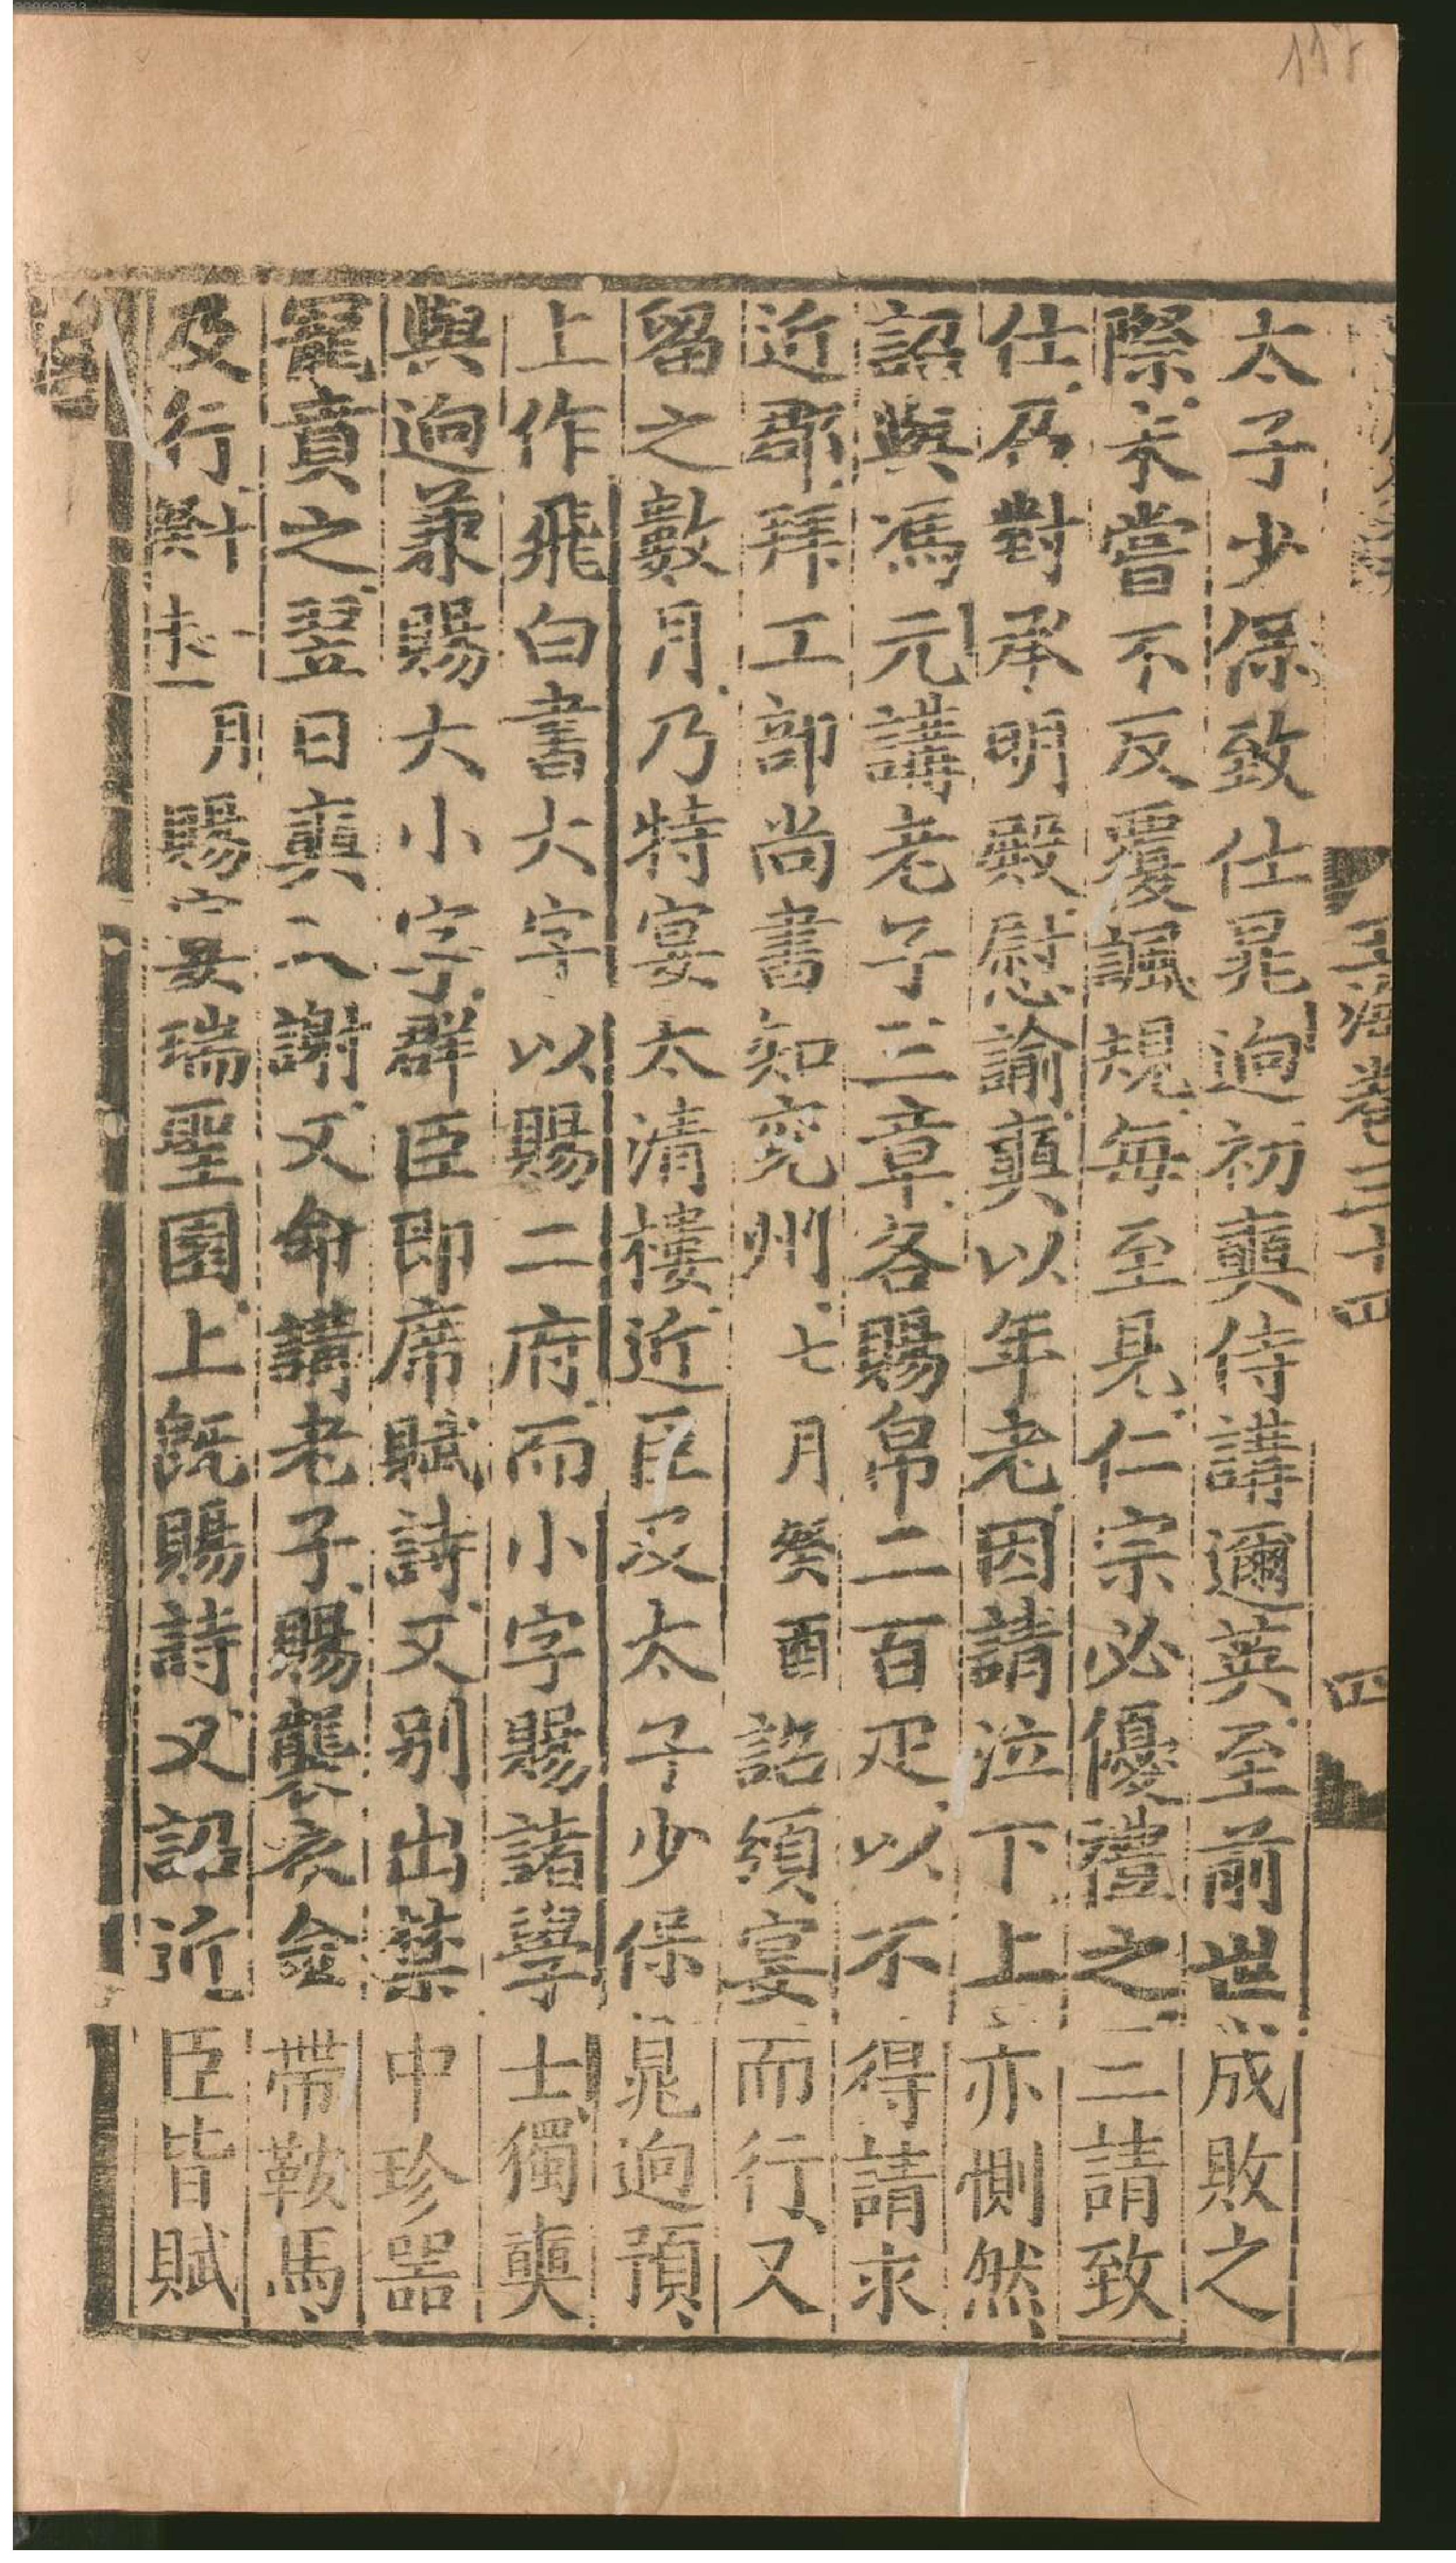 117
玉海卷三十四
四
太子少保致仕晁迥初奭侍講邇英至前世成敗之
際未嘗不反覆諷規每至見仁宗必優禮之二請致
仕乃對承明殿慰諭奭以年老因請泣下上亦惻然
詔與馮元講老子三章各賜帛二百疋以不得請求
近郡拜工部尚書知兖州七月癸酉詔須宴而行又
留之數月乃特宴太清樓近臣及太子少保晁迥預
上作飛白書大字以賜二府而小字賜諸學士獨奭
與迥兼賜大小字群臣即席賦詩又别出禁中珍器
寵賁之翌日奭入謝又命講老子賜襲衣金帶鞍馬
及行十一月癸未賜宴瑞聖園上旣賜詩又詔近臣皆賦